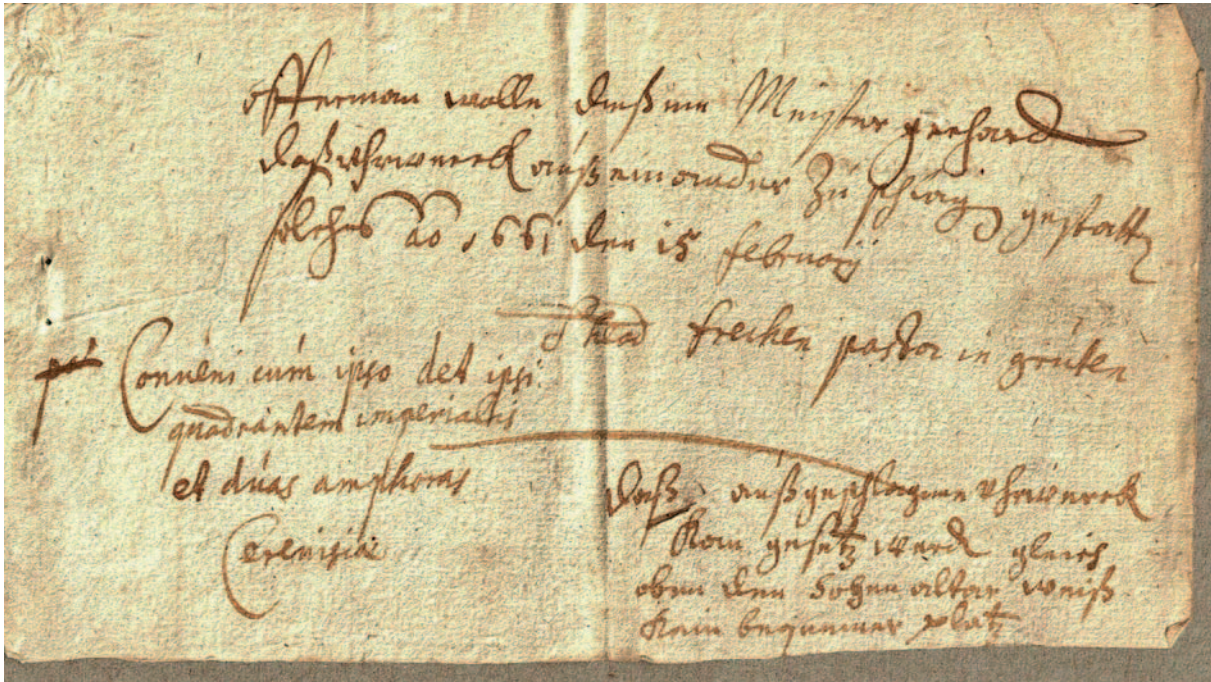 offerman wolle diesem Meister gerhard
daß uhrwerck außeinander zu schlag gestatt
solches ao 1661 den 15 februarij
frechen pastor in gruten
Convéni cúm ipso det ipsi
quadrantem imperialis
et dúas amphoras
Cerevisiae
daß außgeschlagene uhrwerck
kan gesetz werd gleich
oben den hohen altar weiß
kein bequemer platz